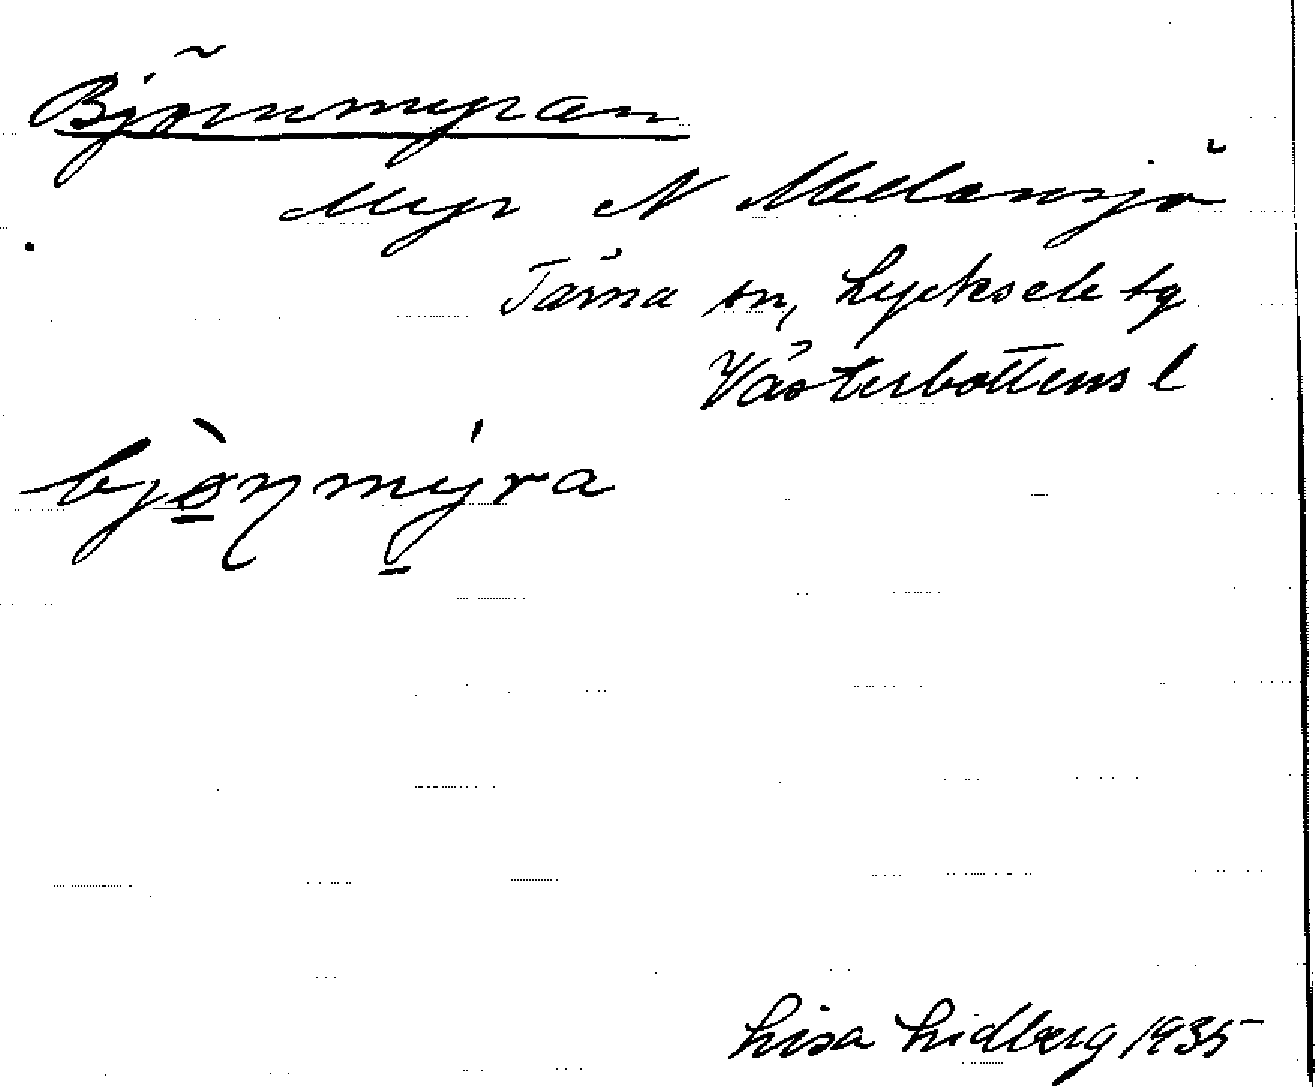 Björnmyran
Myr N Mellansjö
Tärna sn, Lycksele tg
Västerbottens l
bjö̀ṇmýra
Lisa Lidberg 1935